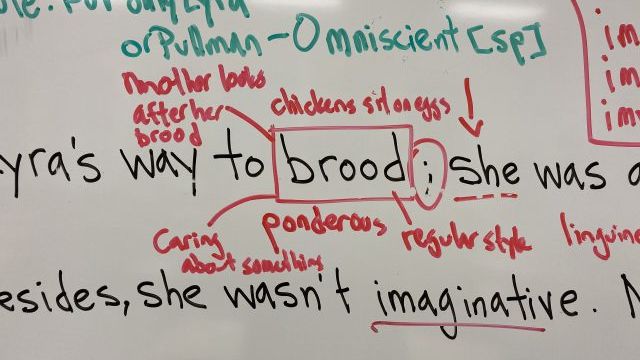 orPullman - Omniscient [sp]
im
im
im
mother looks
after her
brood
chickens sit on eggs
yra's way to brood; she was a
Caring
about something
ponderous
regular style
linguine
esides, she wasn't imaginative.